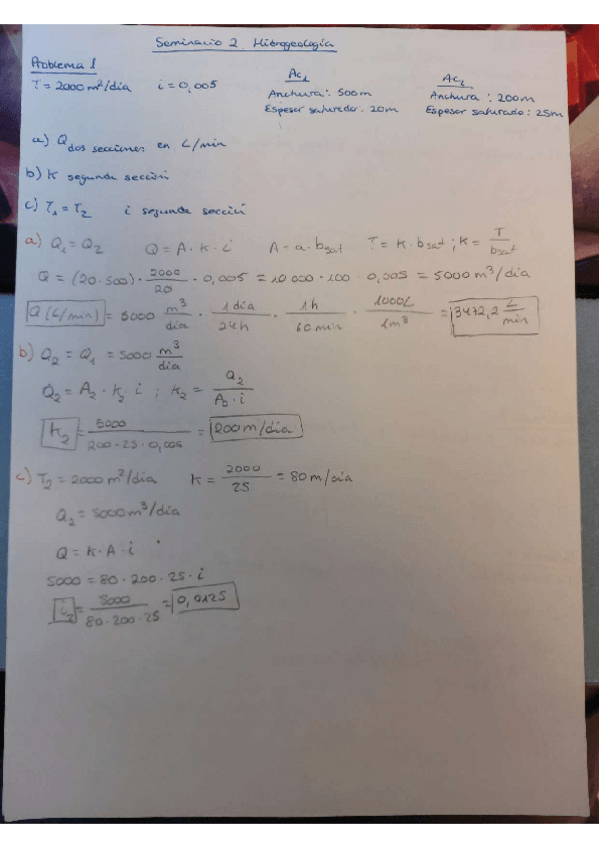 Seminario 2 Hidrogeología
Problema 1
T = 2000 m²/día i = 0,005
Ac₁
Anchura: 500m
Espesor saturado: 20m
Ac₂
Anchura : 200m
Espesor saturado: 25m
a) Q dos secciones en L/min
b) K segunda sección
c) T₁ = T₂ i segunda sección
a) Q₁ = Q₂ Q = A · K · i A = a · b sat T = K · b sat ; K = T / b sat
Q = (20 · 500) · 2000 / 20 · 0,005 = 10 000 · 100 · 0,005 = 5000 m³/día
Q (L/min) = 5000 m³ / día · 1 día / 24h · 1h / 60 min · 1000L / 1m³ = 3472,2 L / min
b) Q₂ = Q₁ = 5000 m³ / día
Q₂ = A₂ · K₂ · i ; K₂ = Q₂ / A₂ · i
K₂ = 5000 / 200 · 25 · 0,005 = 200 m/día
c) T₂ = 2000 m²/día K = 2000 / 25 = 80 m/día
Q₂ = 5000 m³/día
Q = K · A · i
5000 = 80 · 200 · 25 · i
i₂ = 5000 / 80 · 200 · 25 = 0,0125